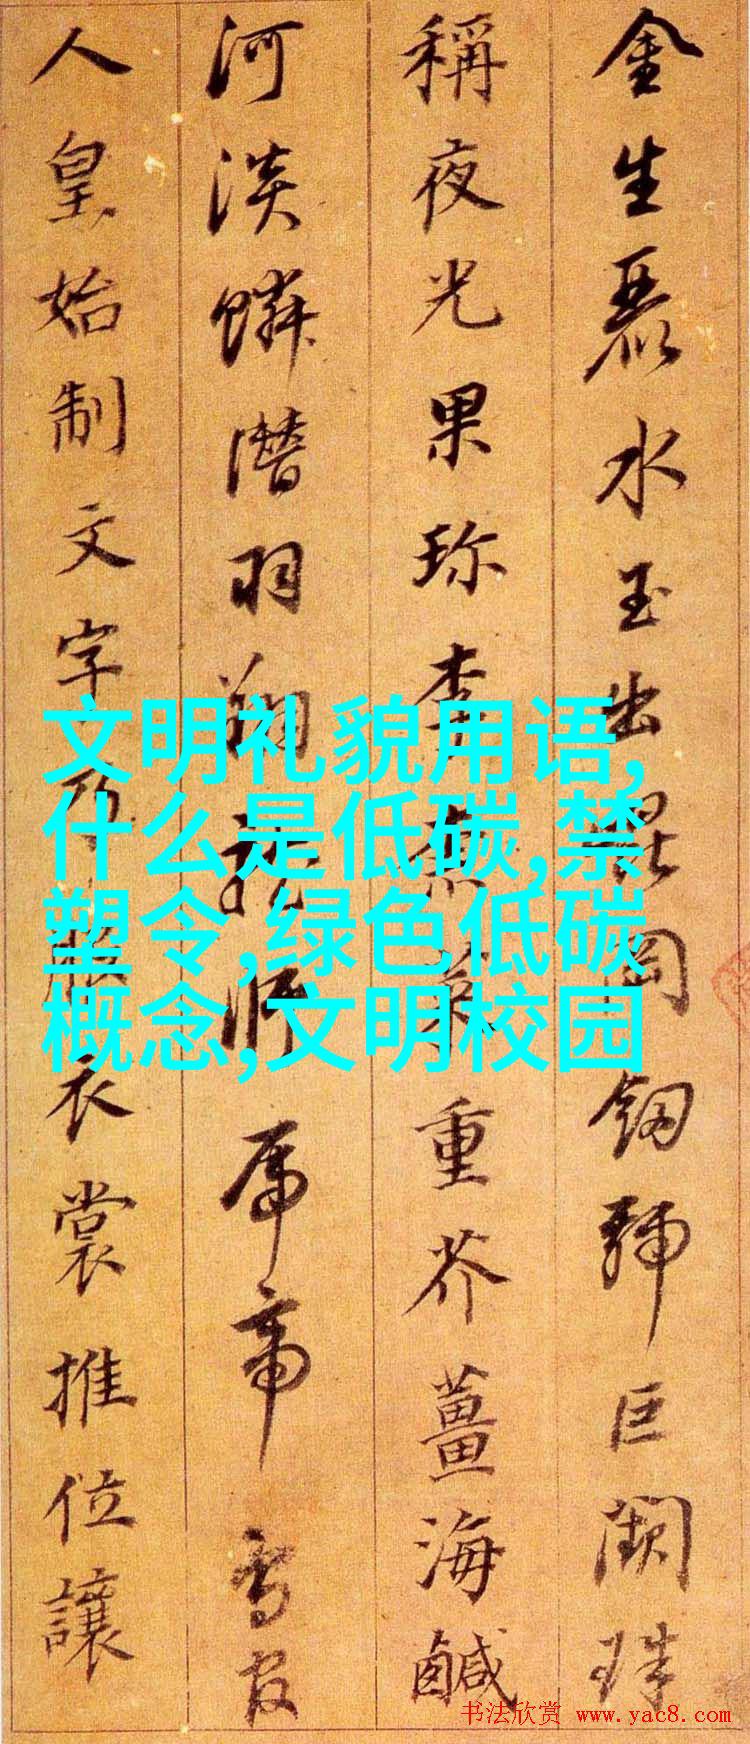 金生麗水玉出崑岡劒號巨闕珠
稱夜光果珎李柰菜重芥薑海鹹
河淡鱗潛羽翔龍師
火帝鳥官
人皇始制文字乃服衣裳推位讓
文明礼貌用语,
什么是低碳,禁
塑令,绿色低碳
概念,文明校园
书法欣赏 www.yac8.com